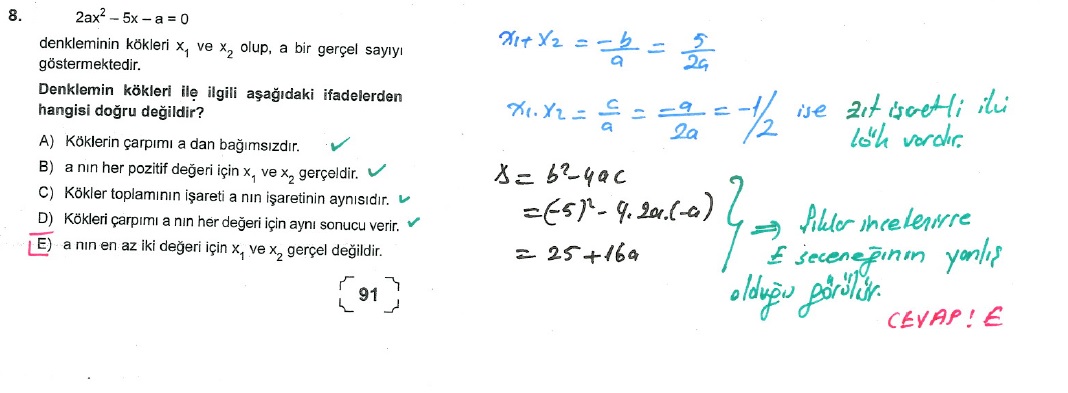 8. 2ax² – 5x – a = 0
denkleminin kökleri x₁ ve x₂ olup, a bir gerçel sayıyı
göstermektedir.
Denklemin kökleri ile ilgili aşağıdaki ifadelerden
hangisi doğru değildir?
A) Köklerin çarpımı a dan bağımsızdır. ✓
B) a nın her pozitif değeri için x₁ ve x₂ gerçeldir. ✓
C) Kökler toplamının işareti a nın işaretinin aynısıdır. ✓
D) Kökleri çarpımı a nın her değeri için aynı sonucu verir. ✓
E) a nın en az iki değeri için x₁ ve x₂ gerçel değildir.
91
x₁+x₂ = -b/a = 5/2a
x₁.x₂ = c/a = -a/2a = -1/2 ise zıt işaretli iki
kök vardır.
Δ = b²-4ac
=(-5)²-4.2a.(-a)
= 25+16a
⇒ şıklar incelenirse
E seçeneğinin yanlış
olduğu görülür.
CEVAP! E